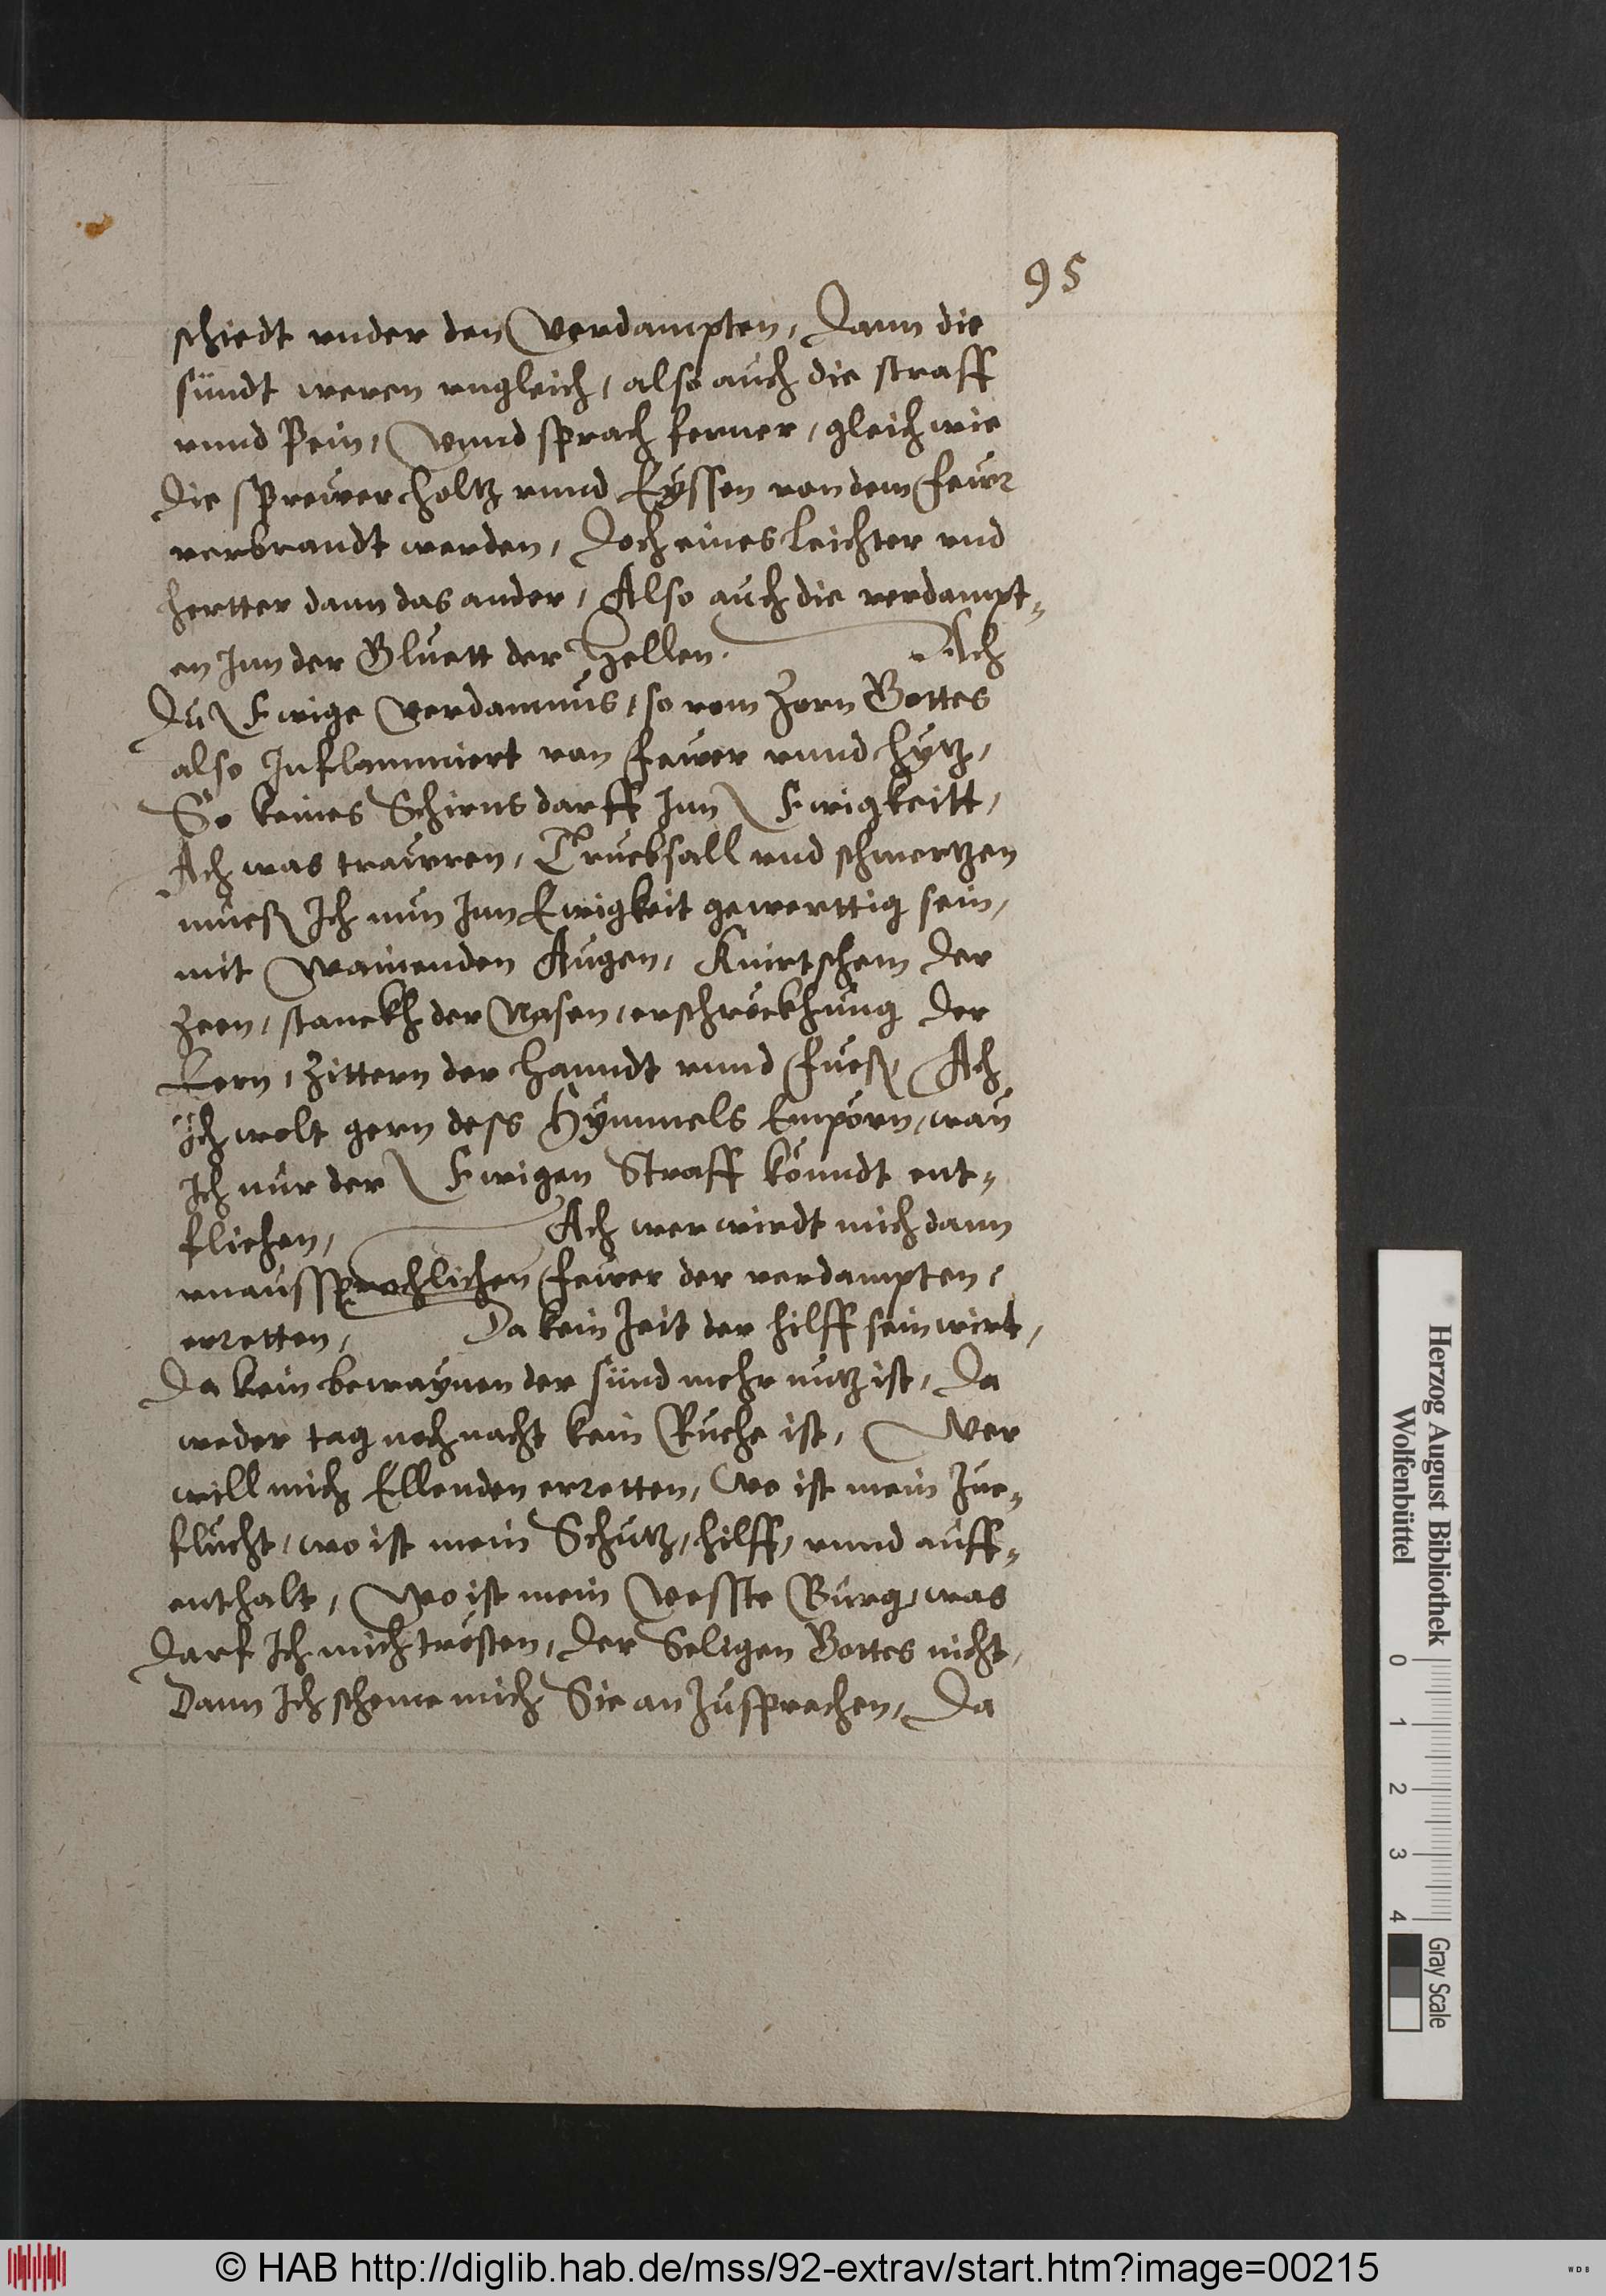 95
schiedt vnder den Verdampten, Dann die
sündt weren vngleich, also auch die straff
vnnd Pein, Vnnd sprach ferner, gleich wie
die sprewer holtz vnnd Eyssen von dem fewr
verbrandt werden, Doch eines leichter vnd
hertter dann das ander, Also auch die verdampt=
en Jnn der Gluett der Hellen. Ach
Du Ewige Verdamnus, so vom Zorn Gottes
also Jnflammiert von fewer vnnd hytz,
So keines Schirns darff Jnn Ewigkeitt,
Ach was trawren, Truebsall vnd schmertzen
mueß Jch nun Jnn Ewigkeit gewerttig sein,
mit Wainenden Augen, Knirtschem der
Zeen, stanckh der Nasen, erschröckhung der
Eern, Zittern der Hanndt vnnd fueß, Ach
Jch wolt gern dess Hymmels Empörn, wan
Jch nur der Ewigen Straff könndt ent=
fliehen, Ach wer wirdt mich dann
vnaussprechlichen fewer der verdampten,
erretten, Da kein Zeit der hilff sein wirt,
Da kein bewaynen der sünd mehr nutz ist, Da
weder tag noch nacht kein Ruehe ist, Wer
will mich Ellenden erretten, Wo ist mein Zue=
flucht, wo ist mein Schutz, hilff, vnnd auff=
enthalt, Wo ist mein Vesste Burg, was
darf Jch mich trösten, der Seligen Gottes nicht,
Dann Jch scheme mich Sie an Zusprechen, Da
Herzog August Bibliothek
Wolfenbüttel
0 1 2 3 4
Gray Scale
© HAB http://diglib.hab.de/mss/92-extrav/start.htm?image=00215
WDB